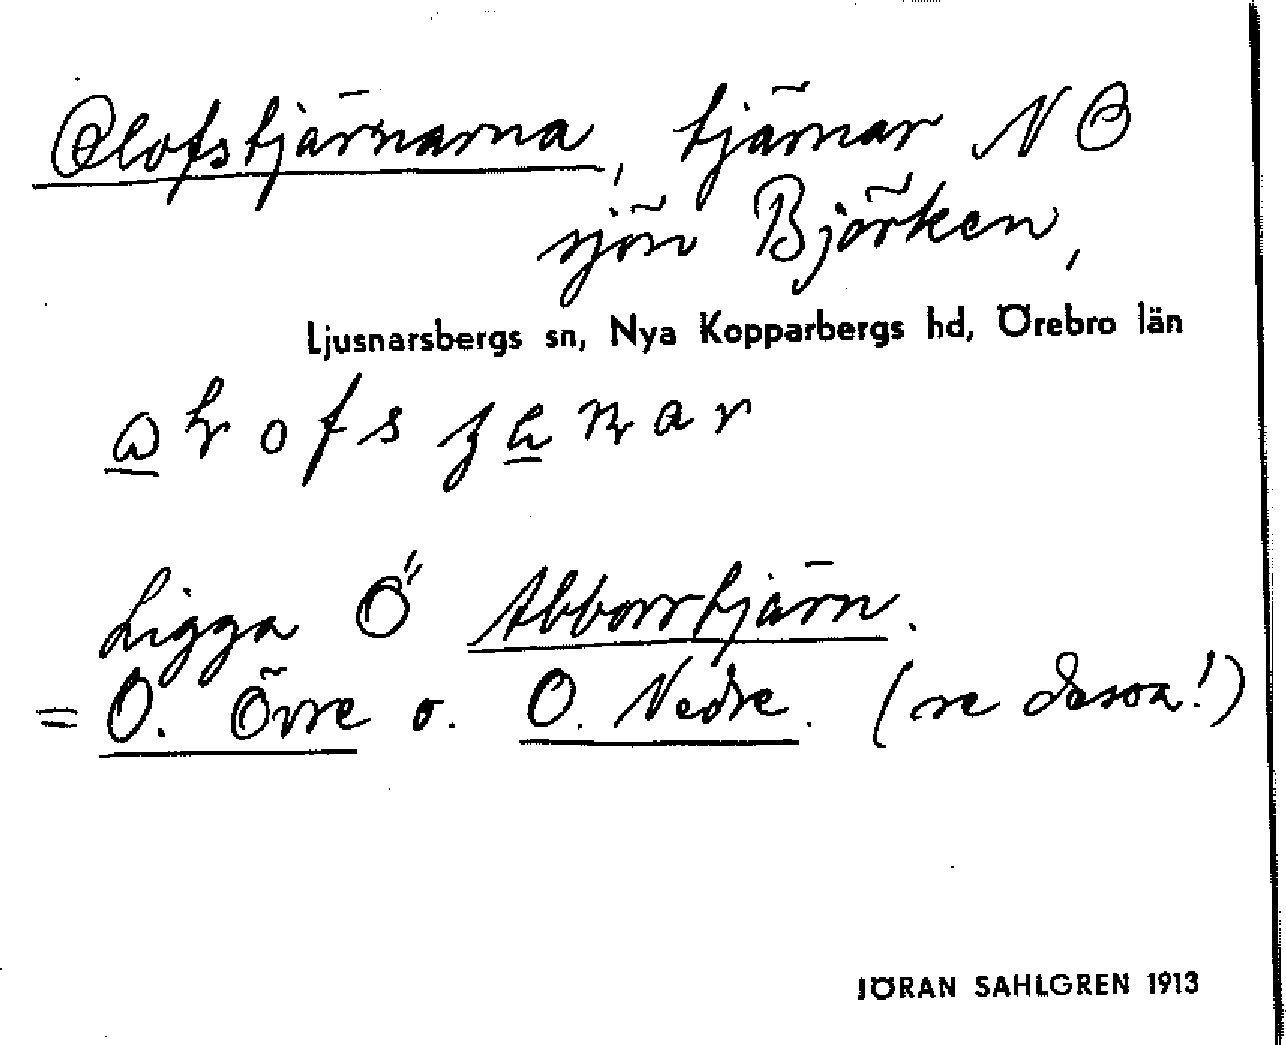 Olofstjärnarna, tjärnar N O
sjön Björken,
Ljusnarsbergs sn, Nya Kopparbergs hd, Örebro län
Ligga Ö Abborrtjärn.
= O. Övre o. O. Nedre. (se dessa!)
JÖRAN SAHLGREN 1913